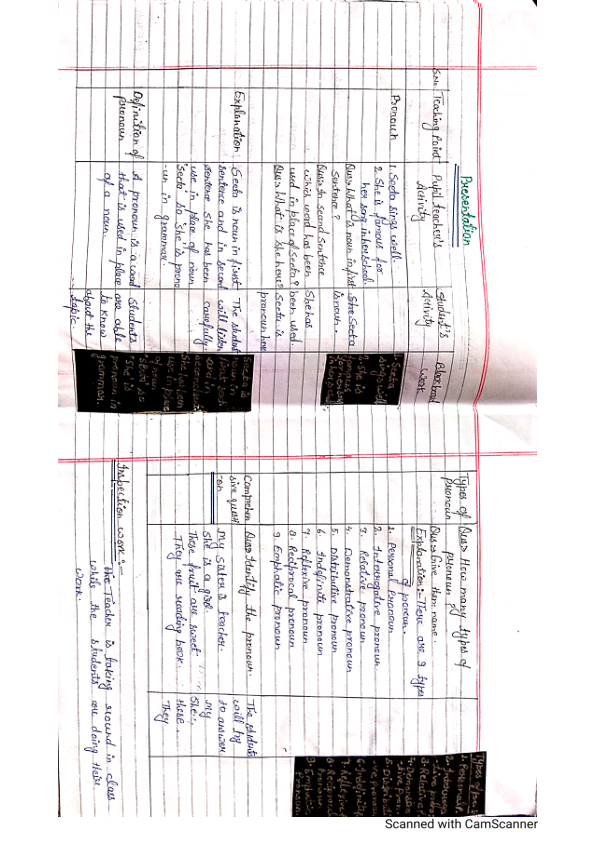 Presentation
S.No. Teaching Point
Pupil teacher's
Activity
Student's
Activity
Blackboard
Work
Pronoun
1. Seeta sings well.
2. She is famous for
her song in her school.
Ques> What is noun in first
sentence?
Ques> In second sentence
which word has been
used in place of Seeta?
Ques> What is She here?
She Seeta
is noun.
She has
been used.
Seeta is
pronoun here
1. Seeta
sings well
2. She is
famous
Explanation:
Seeta is noun in first
sentence and in second
sentence she has been
use in place of noun
'seeta' So 'She' is prono
-un in grammar.
The student
will listen
carefully.
Seeta is
noun in
first sent
She
'She' is
pronoun in
grammar.
Definition of
pronoun
A pronoun is a word
that is used in place
of a noun.
Students
are able
to know
about the
topic.
Types of
pronoun
Ques> How many types of
pronoun of
Ques> Give them name.
Explanation:- There are 9 types
of pronoun.
1. Personal Pronoun
2. Interrogative pronoun.
3. Relative pronoun
4. Demonstrative pronoun
5. Distributive pronoun
6. Indefinite pronoun
7. Reflexive pronoun.
8. Reciprocal pronoun
9. Emphatic pronoun
Types of
1. Personal
3. Relative
4. Demonstra
5. Distribut
6. Indefinite
7. Reflexive
8. Reciprocal
9. Emphatic
Pronoun
Comprehen
sive questi
-on
Ques> Identify the pronoun.
My sister is teacher.
She is a girl
These fruit are sweet
They are reading book.
The students
will try
to answer
My
She
these
They
Inspection work:-
The Teacher is taking round in class
while the students are doing their
work.
Scanned with CamScanner